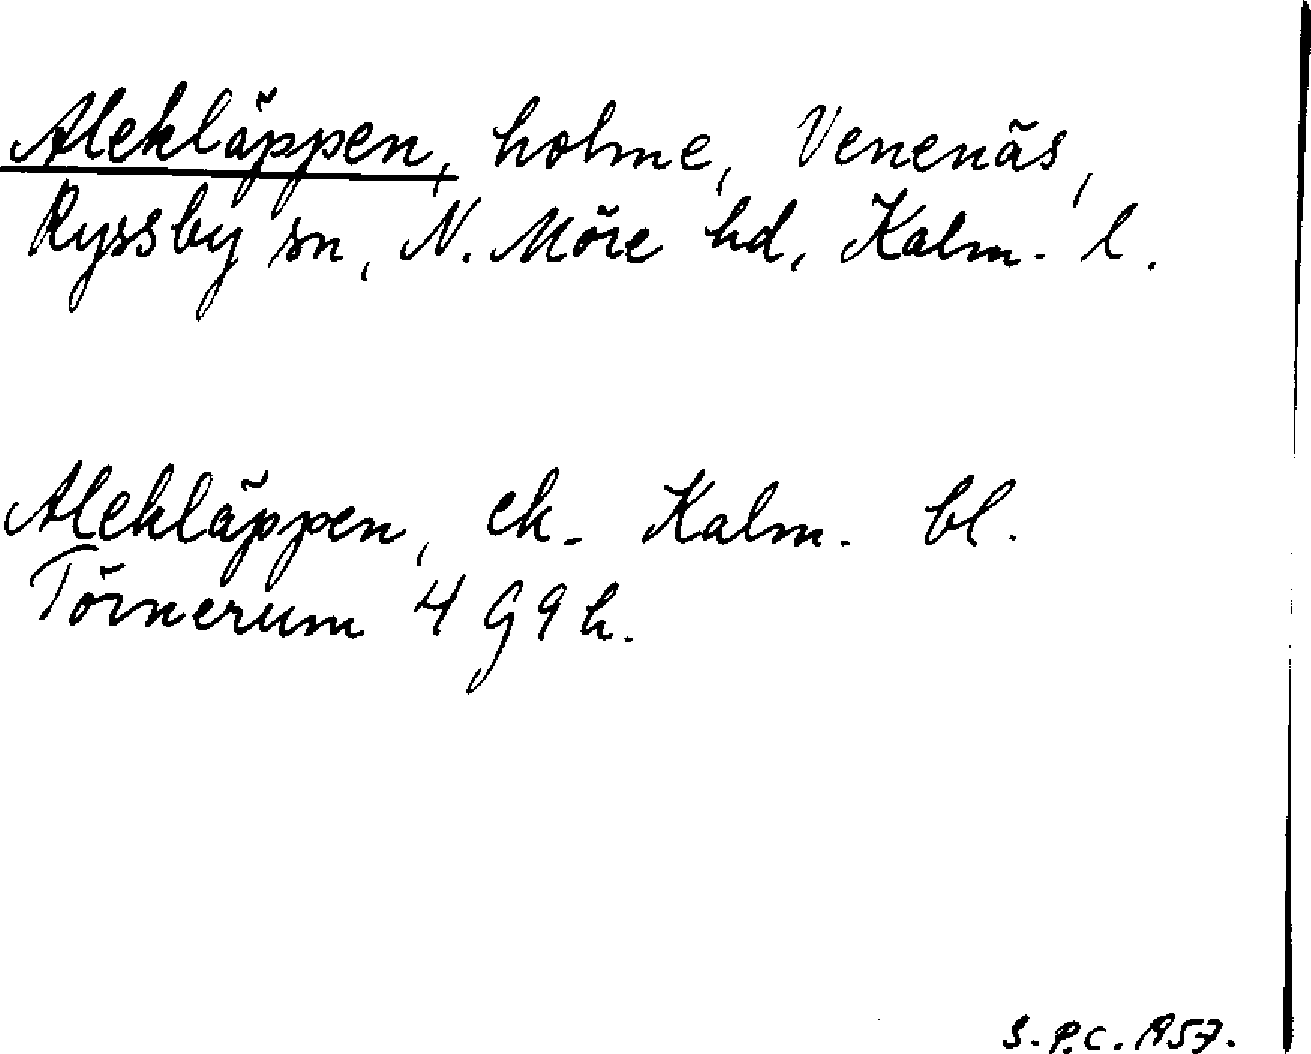 Alekläppen, holme, Venenäs,
Ryssby sn, N. Möre hd, Kalm. l.
Alekläppen, ek. Kalm. bl.
Törnerum 4 G 9 h.
S.P.C. 1957.